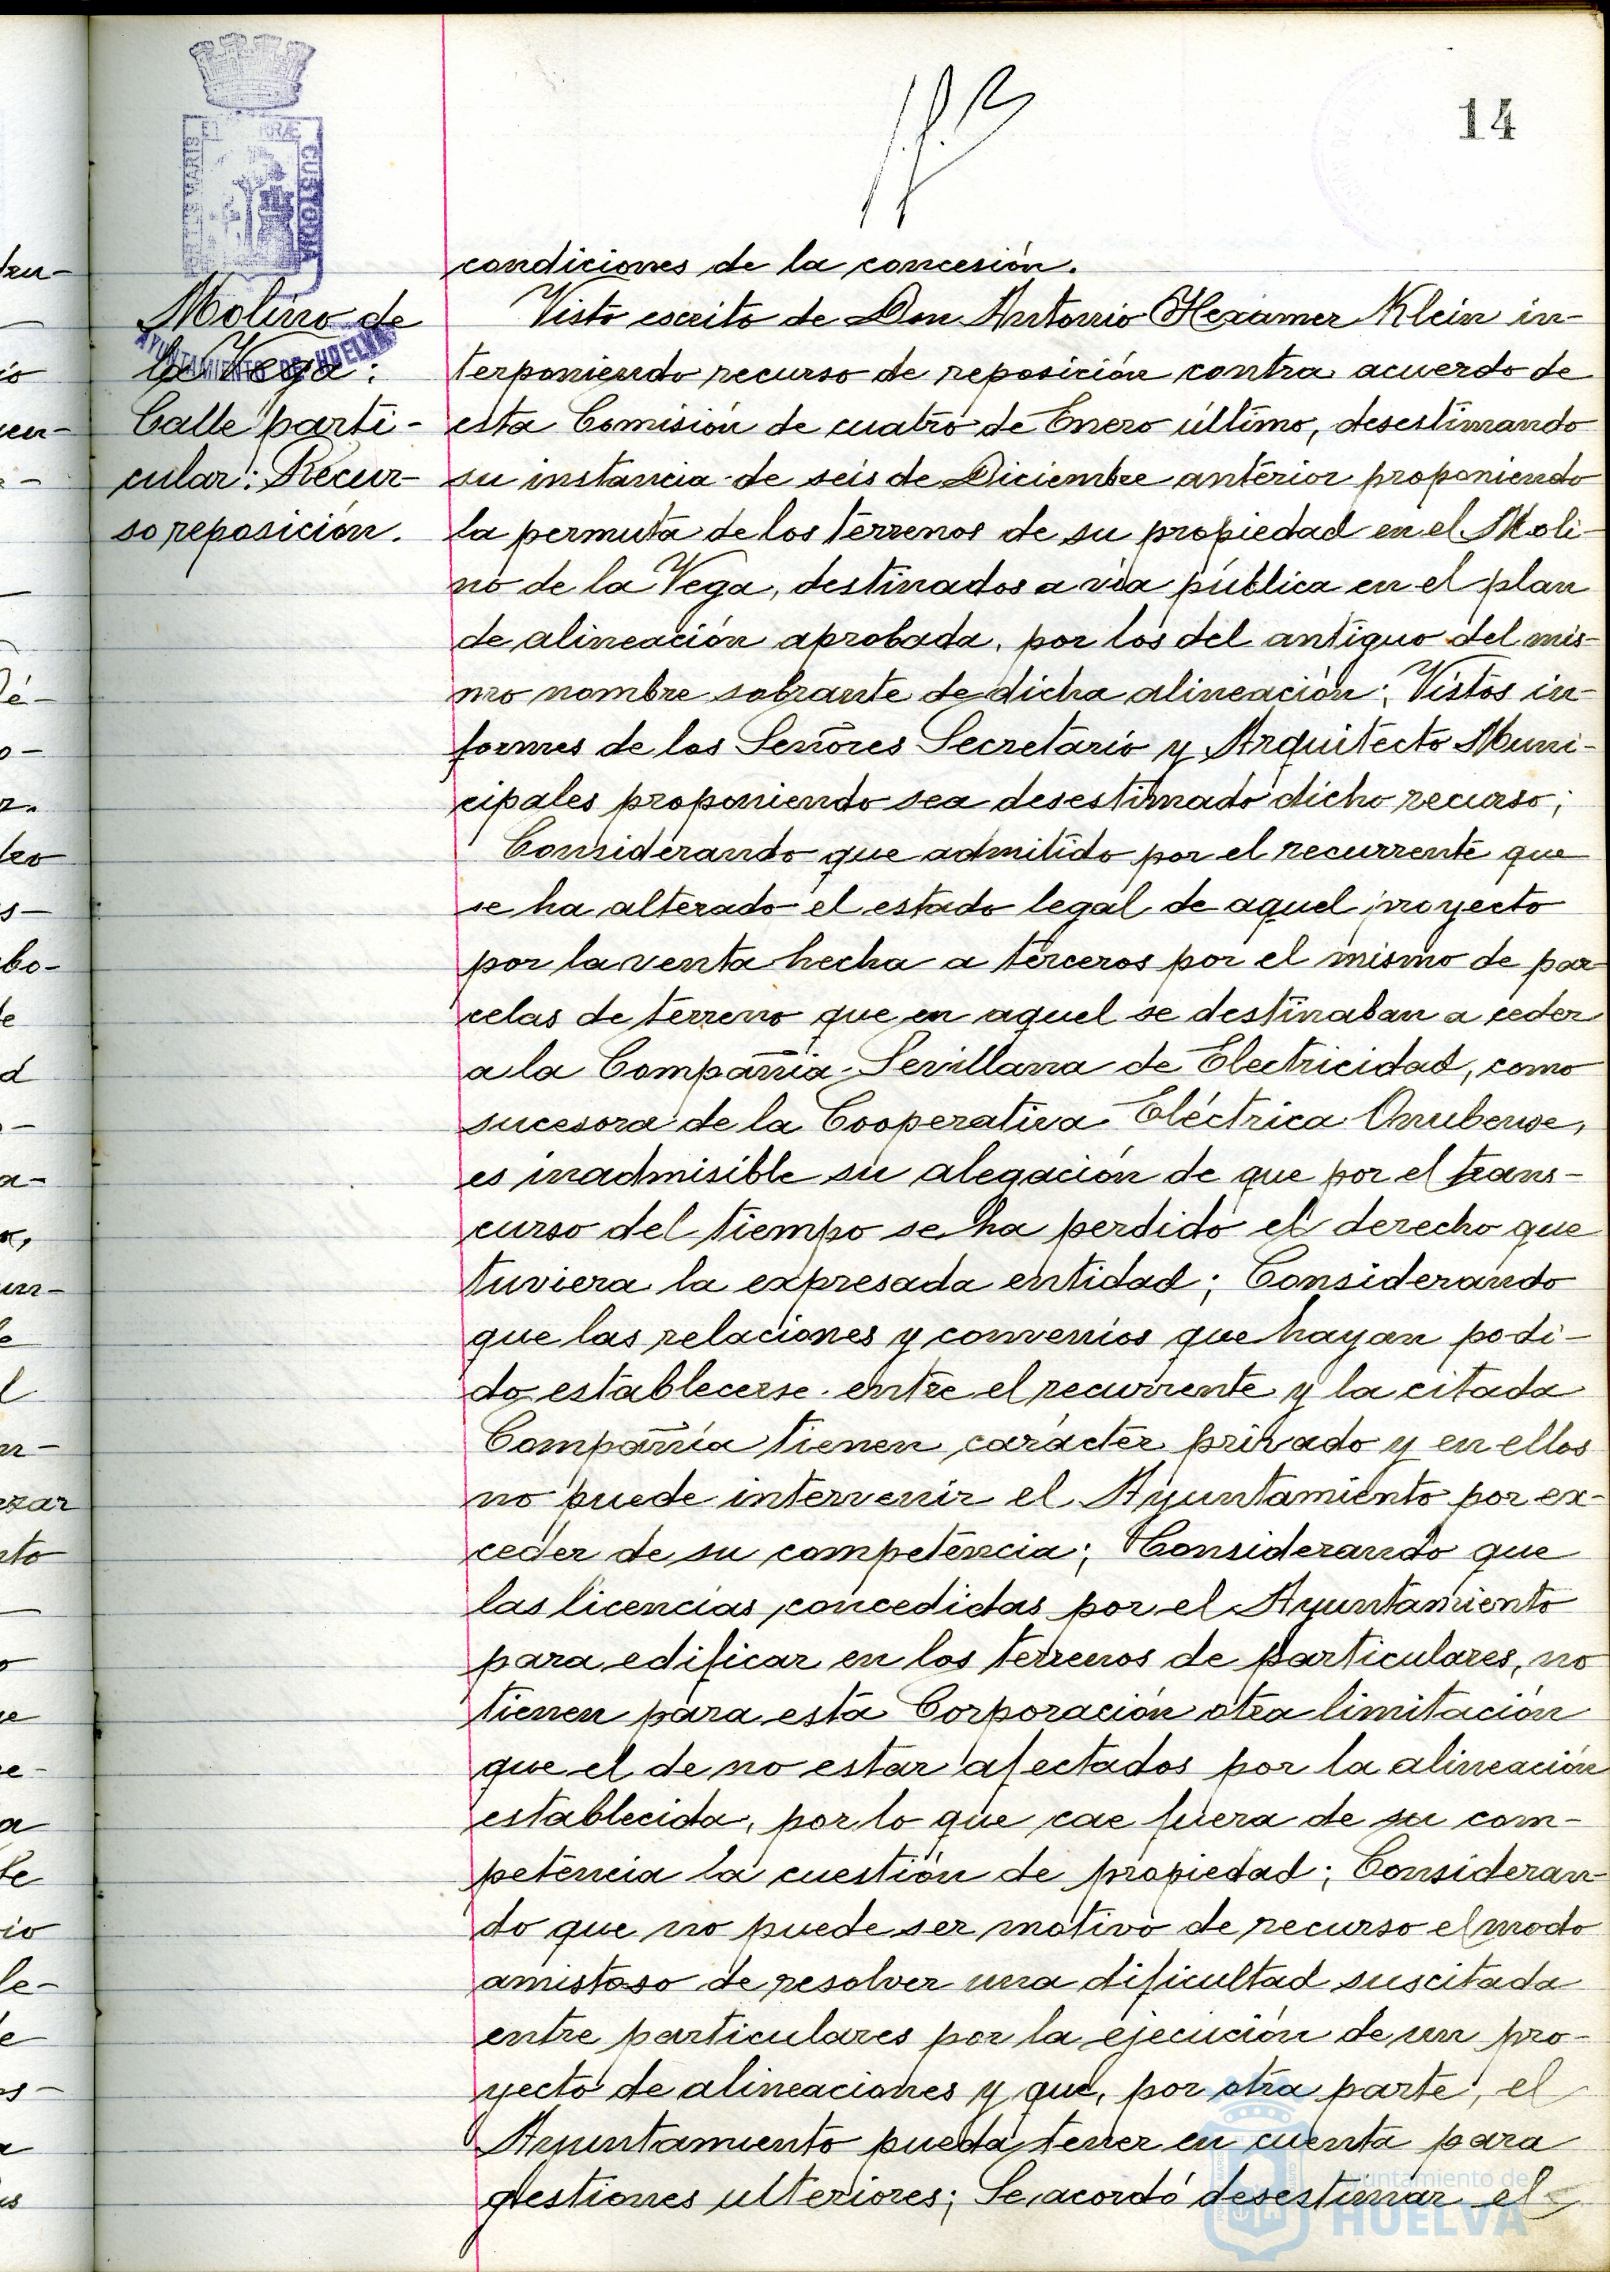 14
condiciones de la concesión.
Molino de
la Vega:
Calle parti-
cular: Recur-
so reposición.
Visto escrito de Don Antonio Hexamer Klein in-
terponiendo recurso de reposición contra acuerdo de
esta Comisión de cuatro de Enero último, desestimando
su instancia de seis de Diciembre anterior proponiendo
la permuta de los terrenos de su propiedad en el Moli-
no de la Vega, destinados a vía pública en el plan
de alineación aprobada, por los del antiguo del mis-
mo nombre sobrante de dicha alineación; Vistos in-
formes de los Señores Secretario y Arquitecto Muni-
cipales proponiendo sea desestimado dicho recurso;
Considerando que admitido por el recurrente que
se ha alterado el estado legal de aquel proyecto
por la venta hecha a terceros por el mismo de par-
celas de terreno que en aquel se destinaban a ceder
a la Compañia Sevillana de Electricidad, como
sucesora de la Cooperativa Eléctrica Onubense,
es inadmisible su alegación de que por el trans-
curso del tiempo se ha perdido el derecho que
tuviera la expresada entidad; Considerando
que las relaciones y convenios que hayan podi-
do establecerse entre el recurrente y la citada
Compañía tienen carácter privado y en ellos
no puede intervenir el Ayuntamiento por ex-
ceder de su competencia; Considerando que
las licencias concedidas por el Ayuntamiento
para edificar en los terrenos de particulares, no
tienen para esta Corporación otra limitación
que el de no estar afectados por la alineación
establecida, por lo que cae fuera de su com-
petencia la cuestión de propiedad; Consideran-
do que no puede ser motivo de recurso el modo
amistoso de resolver una dificultad suscitada
entre particulares por la ejecución de un pro-
yecto de alineaciones y que, por otra parte, el
Ayuntamiento pueda tener en cuenta para
gestiones ulteriores; Se acordó desestimar el
AYUNTAMIENTO DE HUELVA
Ayuntamiento de
HUELVA